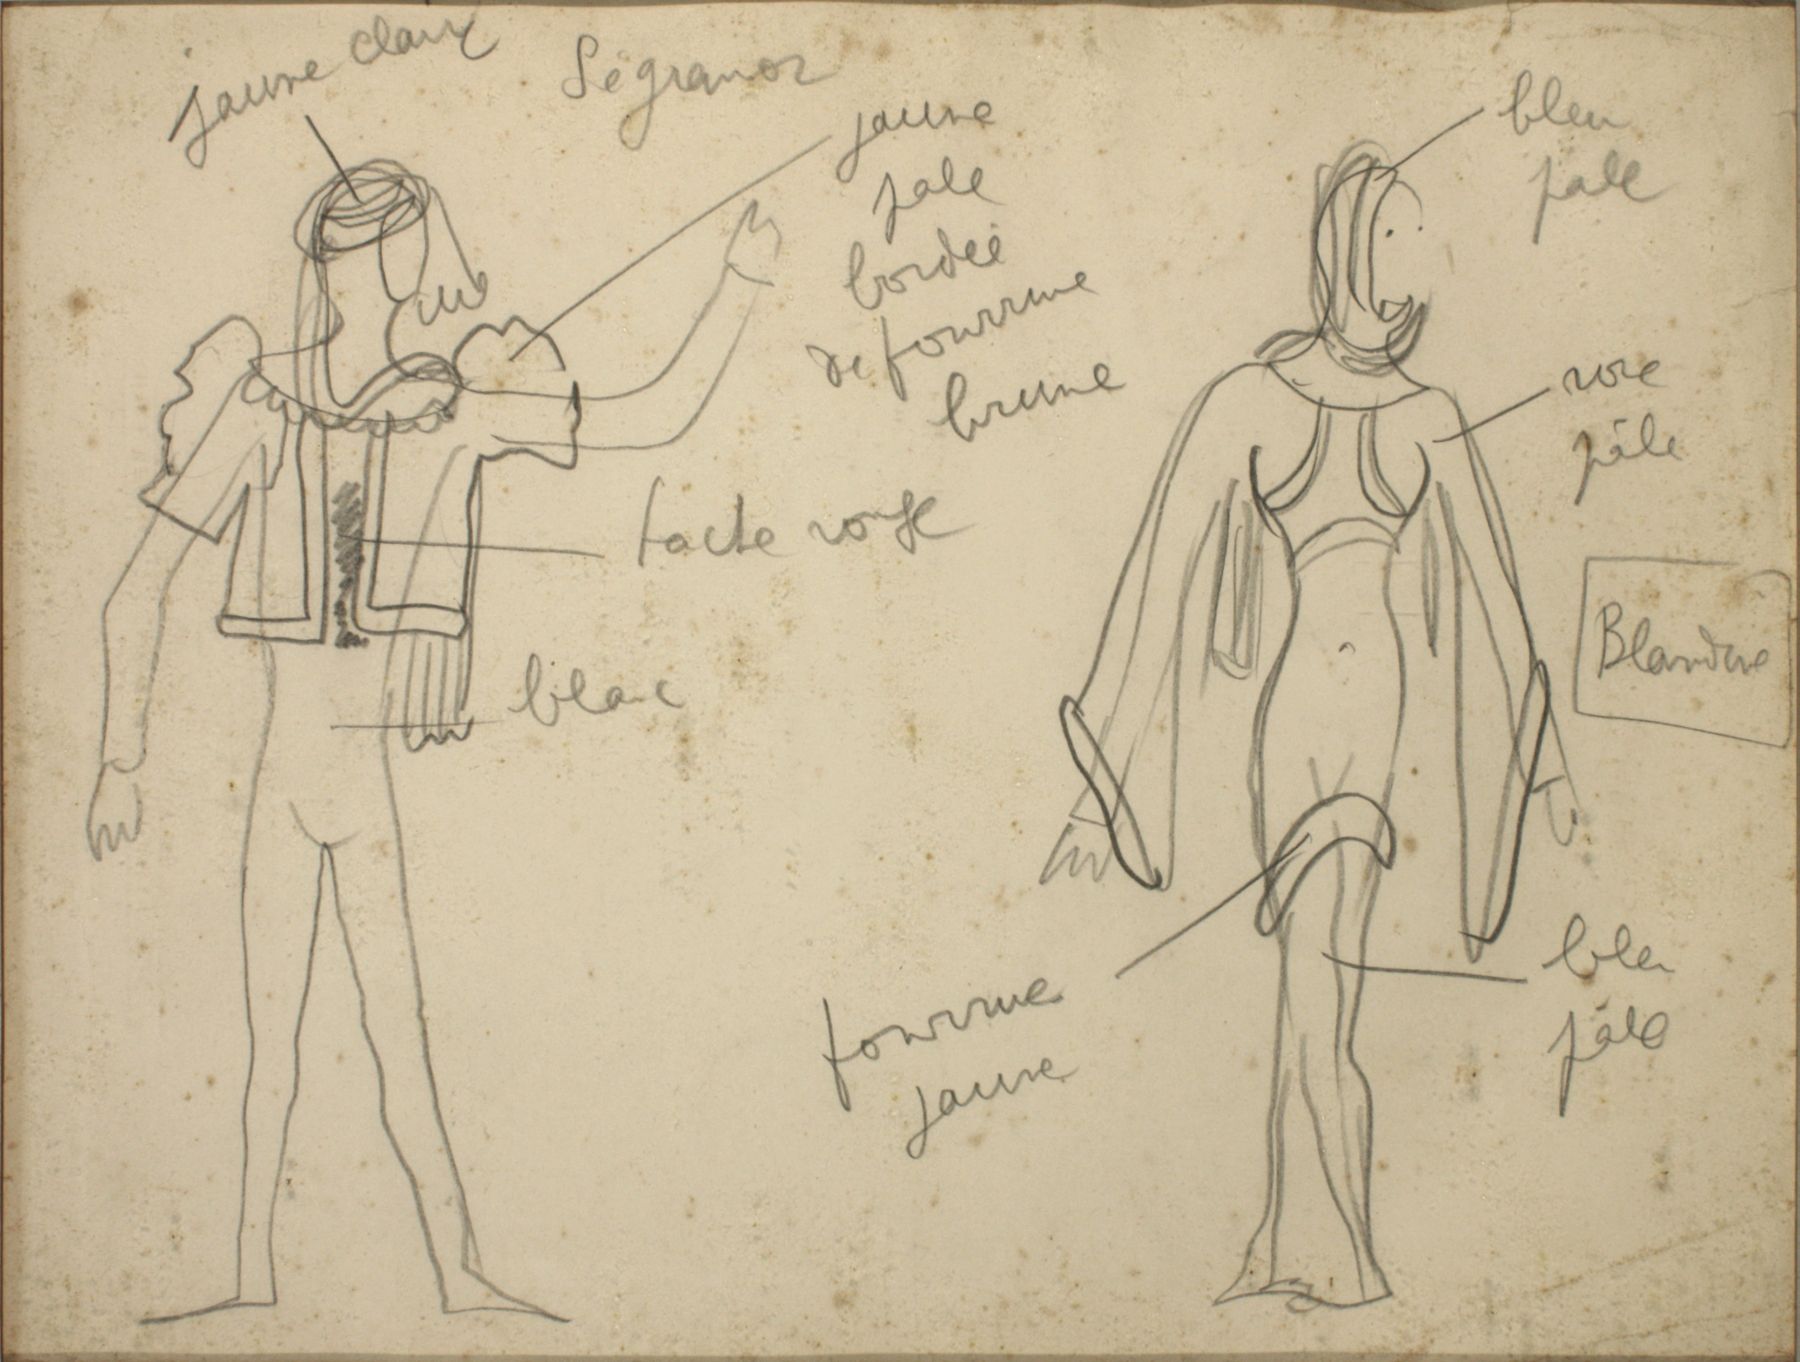 jaune clair
Ségramor
jaune
pale
bordée
de fourrure
brune
tache rouge
blanc
bleu
pale
rose
pâle
Blandine
fourrure
jaune
bleu
pâle